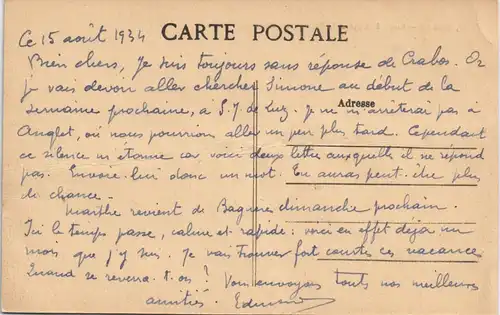 Ce 15 août 1934
CARTE POSTALE
Bien chers, Je suis toujours sans réponse de Crabos. Or
je vais devoir aller chercher Simone au début de la
semaine prochaine, a S. J. de Luz. Je ne m'arrêterai pas à
Adresse
Anglet, où nous pourrons aller un peu plus tard. Cependant
ce silence m'étonne car voici deux lettres auxquelles il ne répond
pas. Envoie-lui donc un mot. Tu auras peut-être plus
de chance.
Marthe revient de Bagnères dimanche prochain.
Ici le temps passe, calme et rapide : voici en effet déjà un
mois que j'y suis. Je vais trouver fort courtes ces vacances
Quand se reverra-t-on ? Vous envoyons tous nos meilleures
amitiés. Edmond